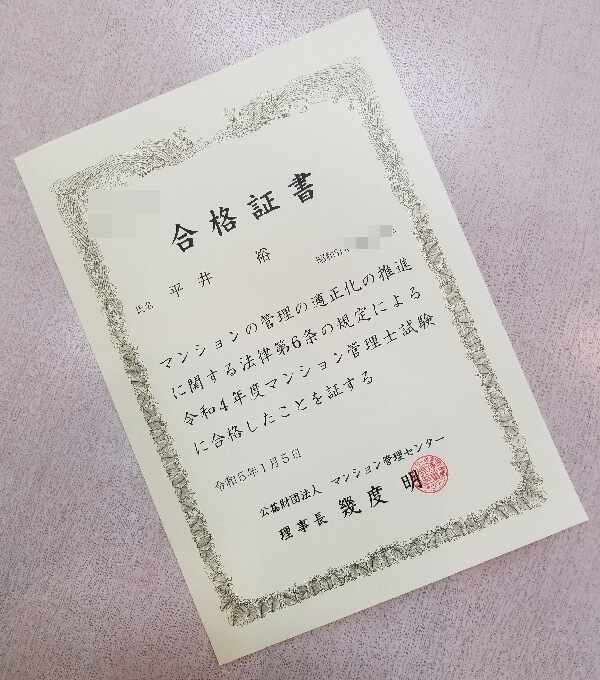 合格証書
氏名 平井 裕
マンションの管理の適正化の推進
に関する法律第6条の規定による
令和4年度マンション管理士試験
に合格したことを証する
令和5年1月5日
公益財団法人 マンション管理センター
理事長 幾度 明